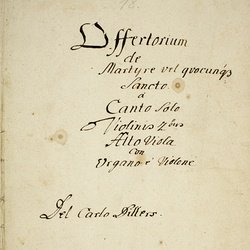 18.
Offertorium
de
Martyre vel quocunq3
Sancto
a
Canto Solo
Violinis 2bus
Alto Viola
con
Organo è Violone
Del Carlo Dillers.